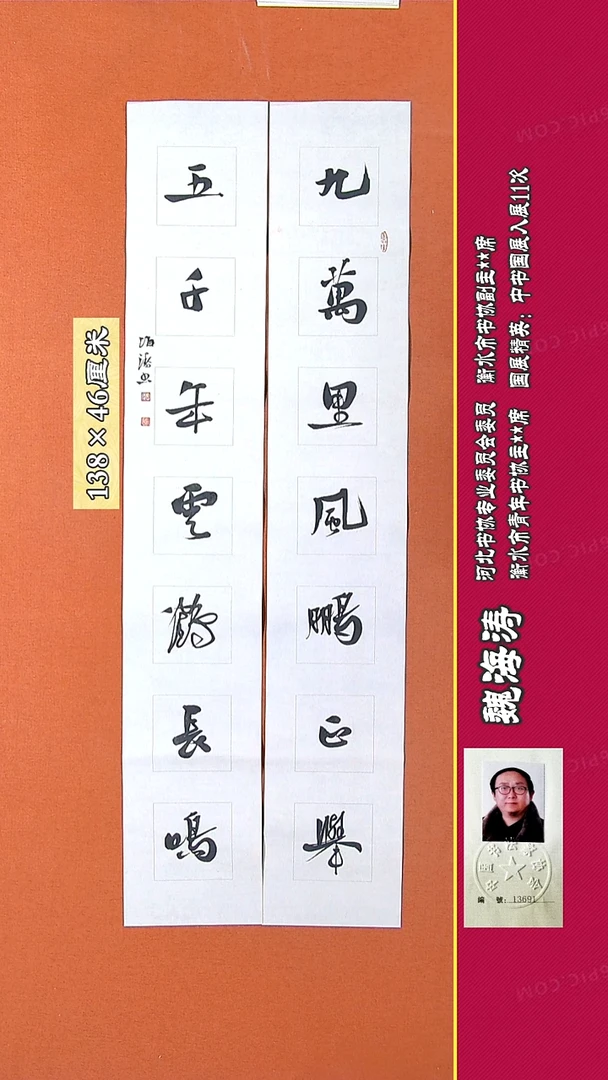 九萬里風鵬正舉
五千年雲鶴長鳴
138×46厘米
魏海涛
河北书协专业委员会委员 衡水市书协副主**席
衡水市青年书协主**席 国展精英：中书国展入展11次
编 號：13691